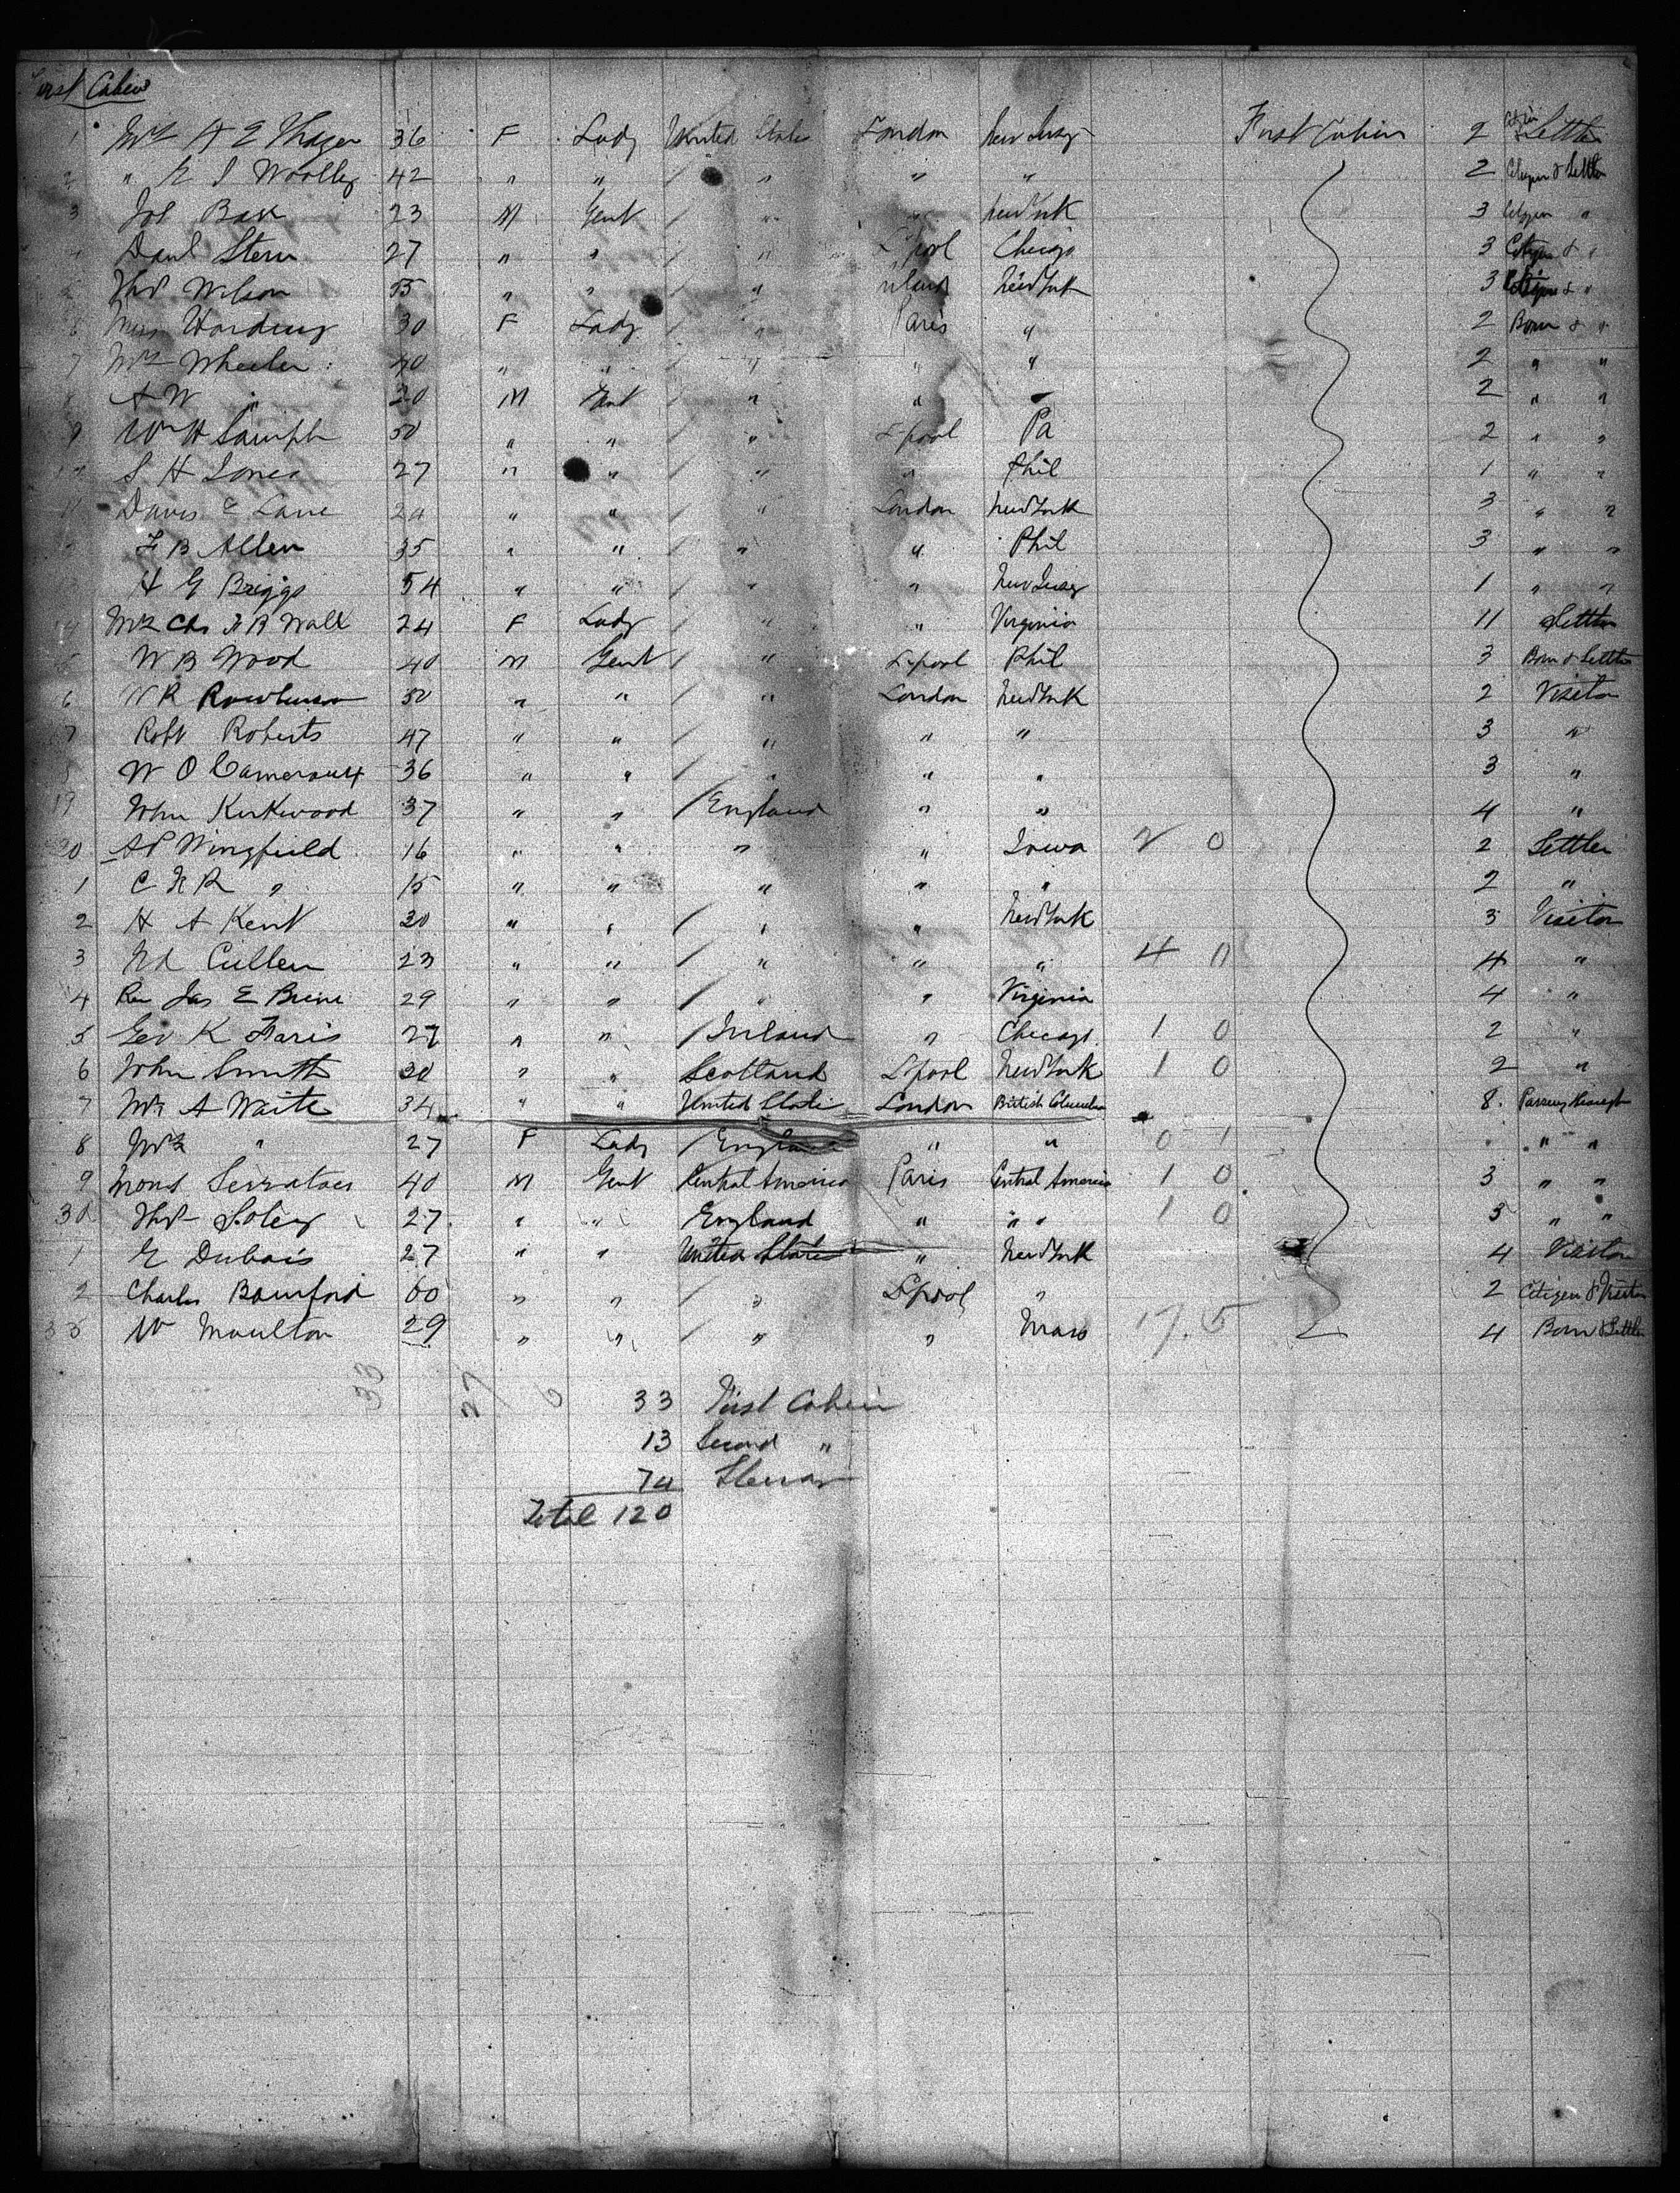 First Cabin
1 Mrs H E Thager 36 F Lady United States London New Jersey First Cabin 2 Citizen & Settler
2 " E S Woolley 42 " " / " " " 2 Citizen & Settler
3 Jos Bax 23 M Gent / " " New York 3 Citizen "
Danl Stern 27 " " " L'pool Chicago 3 Citizen & "
Thos Wilson 55 " " " New York 3 Citizen & "
6 Miss Harding 30 F Lady / " Paris " 2 Born & "
7 Mrs Wheeler 40 " " / " " " 2 " "
A W " 20 M Gent " " " 2 " "
9 Wm H 50 " " / " L'pool Pa 2 " "
S H Jones 27 " " / " " Phil 1 " "
11 Davis E Lane 24 " " / " London New York 3 " "
F B Allen 35 " " / " " Phil 3 " "
H G Briggs 54 " " / " " New Jersey 1 " "
14 Mrs Chs B Wall 24 F Lady / " " Virginia 11 Settler
5 W B Wood 40 M Gent / " L'pool Phil 3 Born & Settler
6 W R Rawlinson 50 " " / " London New York 2 Visitor
7 Robt Roberts 47 " " / " " " 3 "
8 W O 36 " " / " " " 3 "
19 John Kirkwood 37 " " / England " " 4 "
20 A P Wingfield 16 " " " " Iowa 2 0 2 Settler
1 C N R " 15 " " " " " 2 "
2 H A Kent 30 " " / " " New York 3 Visitor
3 Cullen 23 " " / " " " 4 0 4 "
4 Rev Jas E Brine 29 " " / " " Virginia 4 "
5 Geo K Faris 27 " " / Ireland " Chicago 1 0 2 "
6 John Smith 30 " " Scotland L'pool New York 1 0 2 "
7 Mr A Waite 34 " " United States London British Columbia 8 Passing through
8 Mrs " 27 F Lady / England " " 0 1 " "
9 Mons 40 M Gent Central America Paris Central America 1 0 3 " "
30 Thos Soley 27 " " England " " " 1 0 3 " "
1 E Dubois 27 " " United States " New York 4 Visitor
2 Charles Bamford 60 " " / " L'pool " 2 Citizen & Visitor
33 W Moulton 29 " " / " " Mass 17. 5 4 Born & Settler
33 27 6 33 First Cabin
13 Second "
74 Steerage
Total 120